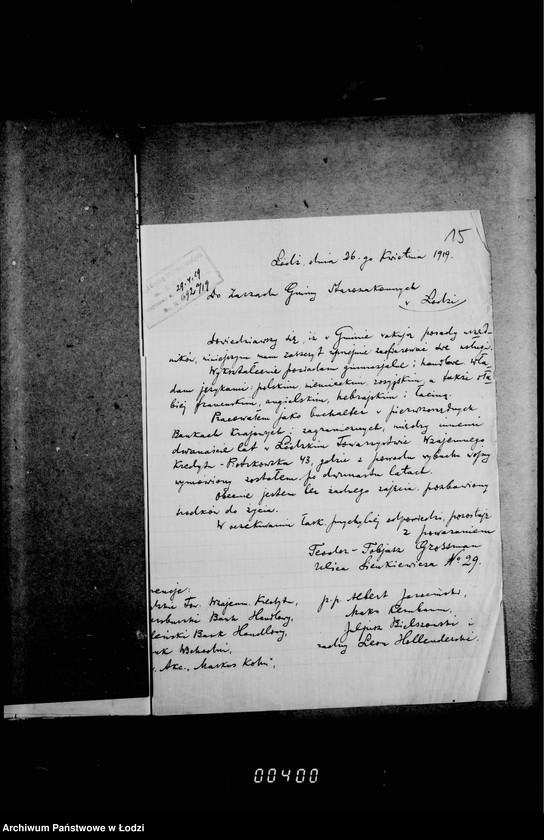 15
Łódź, dnia 26-go Kwietnia 1919.
28.4.19
692/19
Do Zarządu Gminy Starozakonnych
w Łodzi
Dowiedziawszy się, iż w Gminie wakują posady urzęd-
ników, niniejszym mam zaszczyt uprzejmie zaofiarować swe usługi.
Wykształcenie posiadam gimnazjalne i handlowe wła-
dam językami: polskim, niemieckim, rosyjskim, a także sła-
biej francuskim, angielskim, hebrajskim i łaciną.
Pracowałem jako buchalter w pierwszorzędnych
Bankach Krajowych i zagranicznych, między innemi
dwanaście lat w Łódzkim Towarzystwie Wzajemnego
Kredytu - Piotrkowska 43, gdzie z powodu wybuchu wojny
wymówiony zostałem po dwunastu latach.
Obecnie jestem bez żadnego zajęcia, pozbawiony
środków do życia.
W oczekiwaniu łask. przychylnej odpowiedzi, pozostaję
z poważaniem
Teodor-Tobjasz Grossman
Ulica Sienkiewicza № 29.
Tow. Wzajemn. Kredytu,
Bank Handlowy,
Bank Handlowy,
Wschodni,
Akc. „Markus Kohn"
p.p. Albert Jarociński,
Maks Kernbaum,
Juljusz Bielszowski i
radny Leon Hollenderski.
00400
Archiwum Państwowe w Łodzi